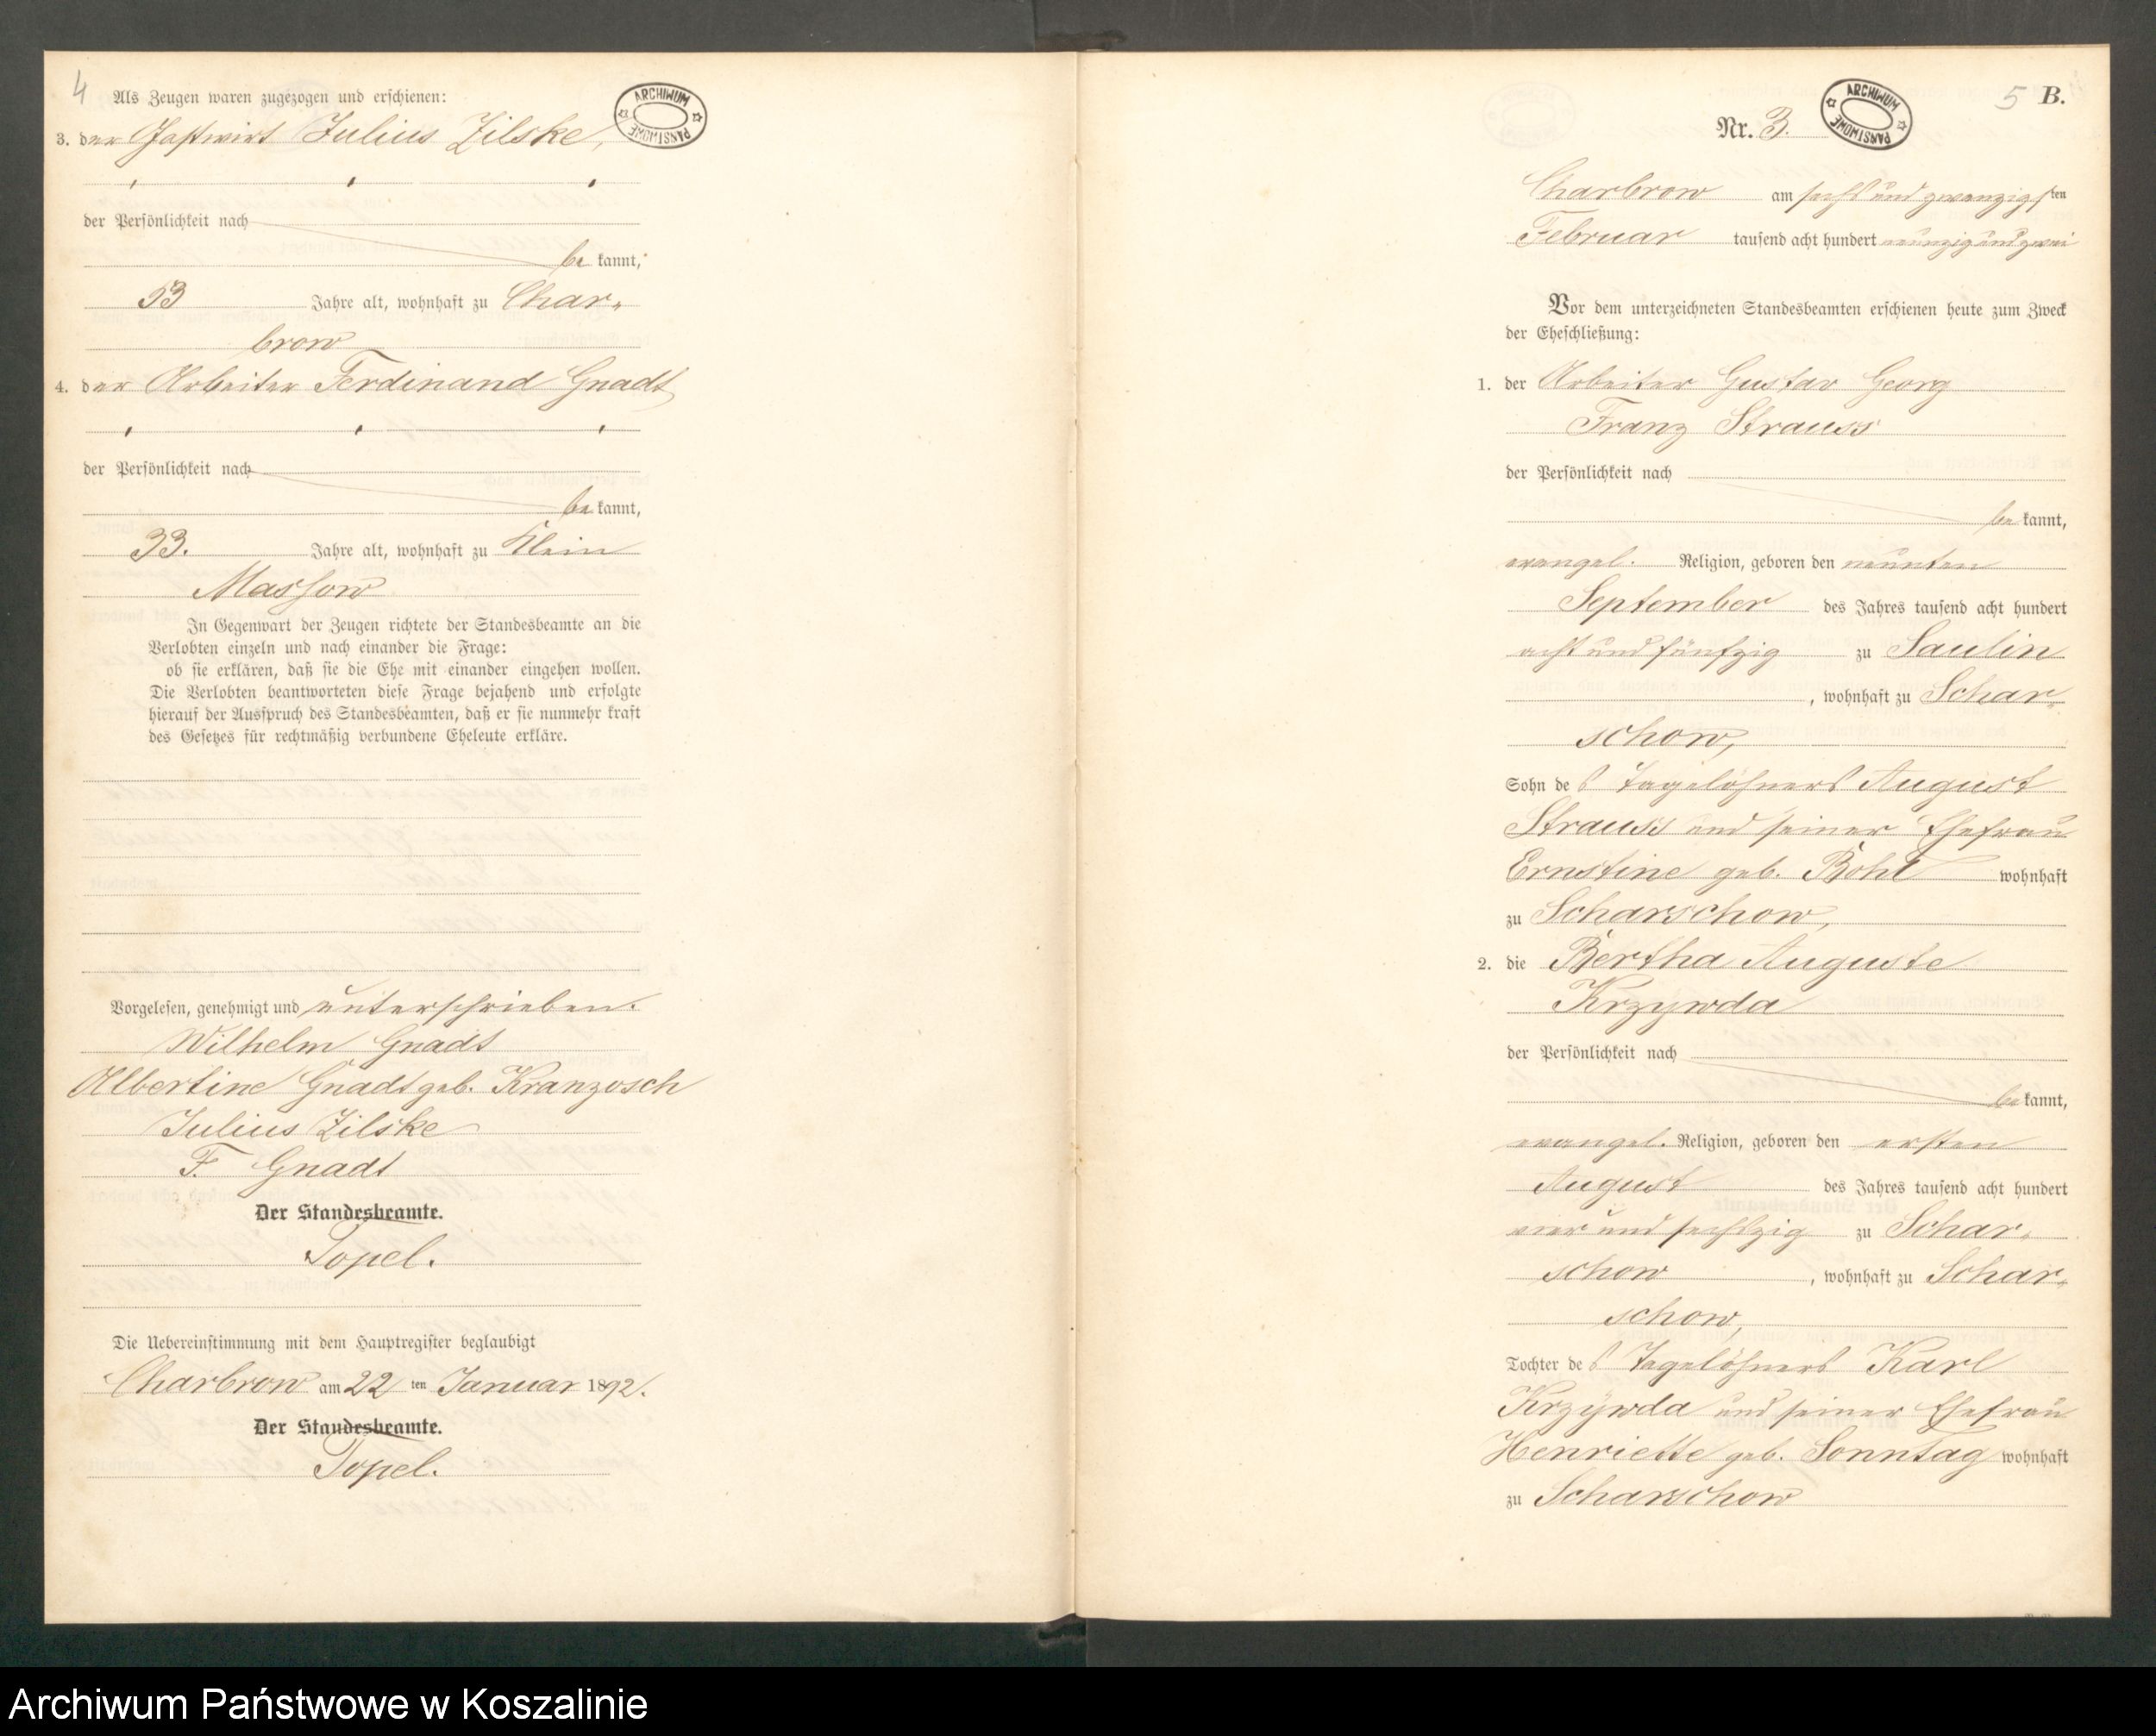 4
Als Zeugen waren zugezogen und erschienen:
ARCHIWUM PAŃSTWOWE
3. der Gastwirt Julius Zilske,
der Persönlichkeit nach
be kannt,
53 Jahre alt, wohnhaft zu Char-
brow
4. der Arbeiter Ferdinand Gnadt
der Persönlichkeit nach
be kannt,
33. Jahre alt, wohnhaft zu Klein
Massow
In Gegenwart der Zeugen richtete der Standesbeamte an die
Verlobten einzeln und nach einander die Frage:
ob sie erklären, daß sie die Ehe mit einander eingehen wollen.
Die Verlobten beantworteten diese Frage bejahend und erfolgte
hierauf der Ausspruch des Standesbeamten, daß er sie nunmehr kraft
des Gesetzes für rechtmäßig verbundene Eheleute erkläre.
Vorgelesen, genehmigt und unterschrieben.
Wilhelm Gnadt
Albertine Gnadt geb. Kranzosch
Julius Zilske
F. Gnadt
Der Standesbeamte.
Topel.
Die Uebereinstimmung mit dem Hauptregister beglaubigt
Charbrow am 22 ten Januar 1892.
Der Standesbeamte.
Topel.
5 B.
Nr. 3.
ARCHIWUM PAŃSTWOWE
Charbrow am sechs und zwanzigsten
Februar tausend acht hundert neunzig und zwei
Vor dem unterzeichneten Standesbeamten erschienen heute zum Zweck
der Eheschließung:
1. der Arbeiter Gustav Georg
Franz Strauss
der Persönlichkeit nach
be kannt,
evangel. Religion, geboren den neunten
September des Jahres tausend acht hundert
acht und fünfzig zu Saulin
, wohnhaft zu Schar-
schow,
Sohn des Tagelöhners August
Strauss und seiner Ehefrau
Ernstine geb. Bohl wohnhaft
zu Scharschow,
2. die Bertha Auguste
Krzywda
der Persönlichkeit nach
be kannt,
evangel. Religion, geboren den ersten
August des Jahres tausend acht hundert
vier und sechszig zu Schar-
schow , wohnhaft zu Schar-
schow,
Tochter des Tagelöhners Karl
Krzywda und seiner Ehefrau
Henriette geb. Sonntag wohnhaft
zu Scharschow
Archiwum Państwowe w Koszalinie